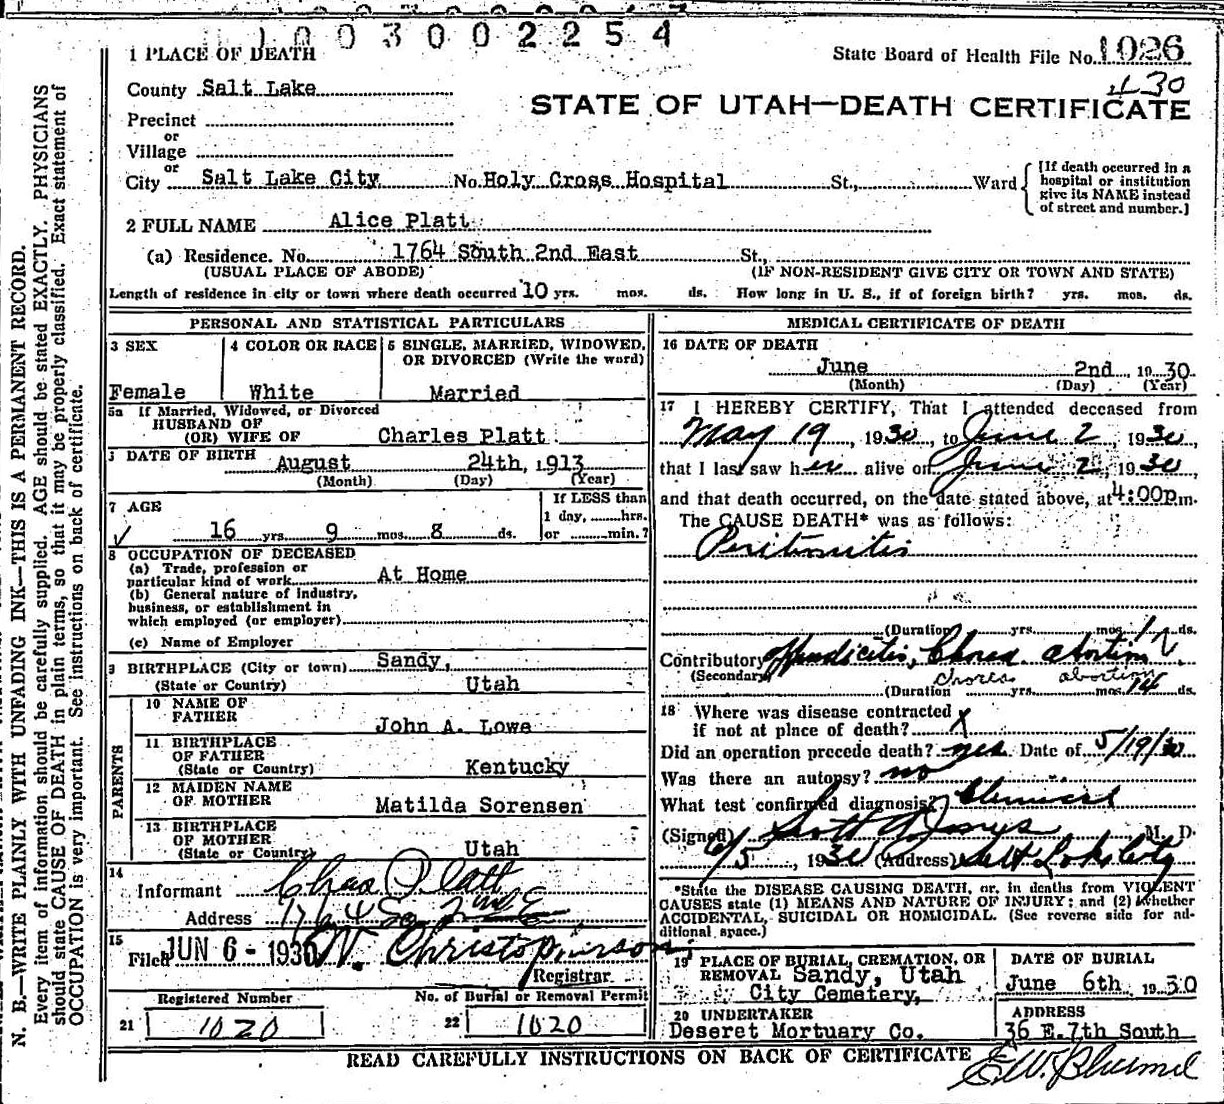 1003002254
1 PLACE OF DEATH
State Board of Health File No. 1026
430
County Salt Lake
STATE OF UTAH—DEATH CERTIFICATE
Precinct
or
Village
or
City Salt Lake City No. Holy Cross Hospital St., Ward
[If death occurred in a
hospital or institution
give its NAME instead
of street and number.]
2 FULL NAME Alice Platt
(a) Residence. No. 1764 South 2nd East St.,
(USUAL PLACE OF ABODE) (IF NON-RESIDENT GIVE CITY OR TOWN AND STATE)
Length of residence in city or town where death occurred 10 yrs. mos. ds. How long in U. S., if of foreign birth? yrs. mos. ds.
PERSONAL AND STATISTICAL PARTICULARS
3 SEX
Female
4 COLOR OR RACE
White
5 SINGLE, MARRIED, WIDOWED,
OR DIVORCED (Write the word)
Married
5a If Married, Widowed, or Divorced
HUSBAND OF
(OR) WIFE OF Charles Platt
DATE OF BIRTH
August 24th, 1913
(Month) (Day) (Year)
7 AGE
16 yrs. 9 mos. 8 ds.
If LESS than
1 day, hrs.
or min.?
8 OCCUPATION OF DECEASED
(a) Trade, profession or
particular kind of work At Home
(b) General nature of industry,
business, or establishment in
which employed (or employer)
(c) Name of Employer
9 BIRTHPLACE (City or town) Sandy,
(State or Country) Utah
PARENTS
10 NAME OF
FATHER John A. Lowe
11 BIRTHPLACE
OF FATHER
(State or Country) Kentucky
12 MAIDEN NAME
OF MOTHER Matilda Sorensen
13 BIRTHPLACE
OF MOTHER
(State or Country) Utah
14
Informant Chas Platt
Address 1764 So 2nd E
15
Filed JUN 6 - 1930 W. Christopherson
Registrar
Registered Number
21 1020
No. of Burial or Removal Permit
22 1020
MEDICAL CERTIFICATE OF DEATH
16 DATE OF DEATH
June 2nd, 1930.
(Month) (Day) (Year)
17 I HEREBY CERTIFY, That I attended deceased from
May 19, 1930, to June 2, 1930
that I last saw her alive on June 2, 1930
and that death occurred, on the date stated above, at 4:00p.m.
The CAUSE DEATH* was as follows:
Peritonitis
(Duration yrs. mos. ds.
Contributory appendicitis, Chorea abortion
(Secondary) chorea abortion
(Duration yrs. mos. 14 ds.
18 Where was disease contracted
if not at place of death?
Did an operation precede death? yes Date of 5/19/30
Was there an autopsy? no
What test confirmed diagnosis?
(Signed) M. D.
6/5, 1930 (Address) Salt Lake City
*State the DISEASE CAUSING DEATH, or, in deaths from VIOLENT
CAUSES state (1) MEANS AND NATURE OF INJURY; and (2) Whether
ACCIDENTAL, SUICIDAL OR HOMICIDAL. (See reverse side for ad-
ditional space.)
19 PLACE OF BURIAL, CREMATION, OR
REMOVAL Sandy, Utah
City Cemetery,
DATE OF BURIAL
June 6th 1930
20 UNDERTAKER
Deseret Mortuary Co.
ADDRESS
36 E. 7th South
READ CAREFULLY INSTRUCTIONS ON BACK OF CERTIFICATE
N. B.—WRITE PLAINLY WITH UNFADING INK—THIS IS A PERMANENT RECORD.
Every item of information should be carefully supplied. AGE should be stated EXACTLY. PHYSICIANS
should state CAUSE OF DEATH in plain terms, so that it may be properly classified. Exact statement of
OCCUPATION is very important. See instructions on back of certificate.